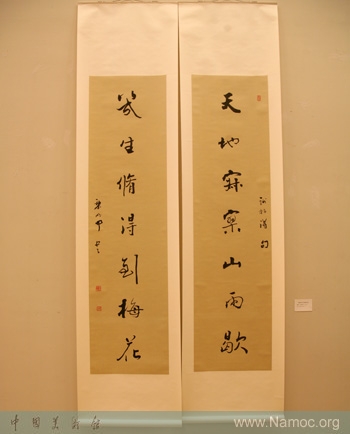 天地寂寥山雨歇
幾生脩得到梅花
中國美術館
www.Namoc.org